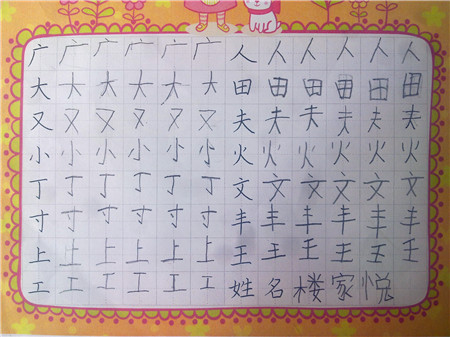 广广广广广广人人人人人人
大大大大大大田田田田田田
又又又又又又夫夫夫夫夫夫
小小小小小小火火火火火火
丁丁丁丁丁丁文文文文文文
寸寸寸寸寸寸丰丰丰丰丰丰
上上上上上上王王王王王王
工工工工工工姓名楼家悦